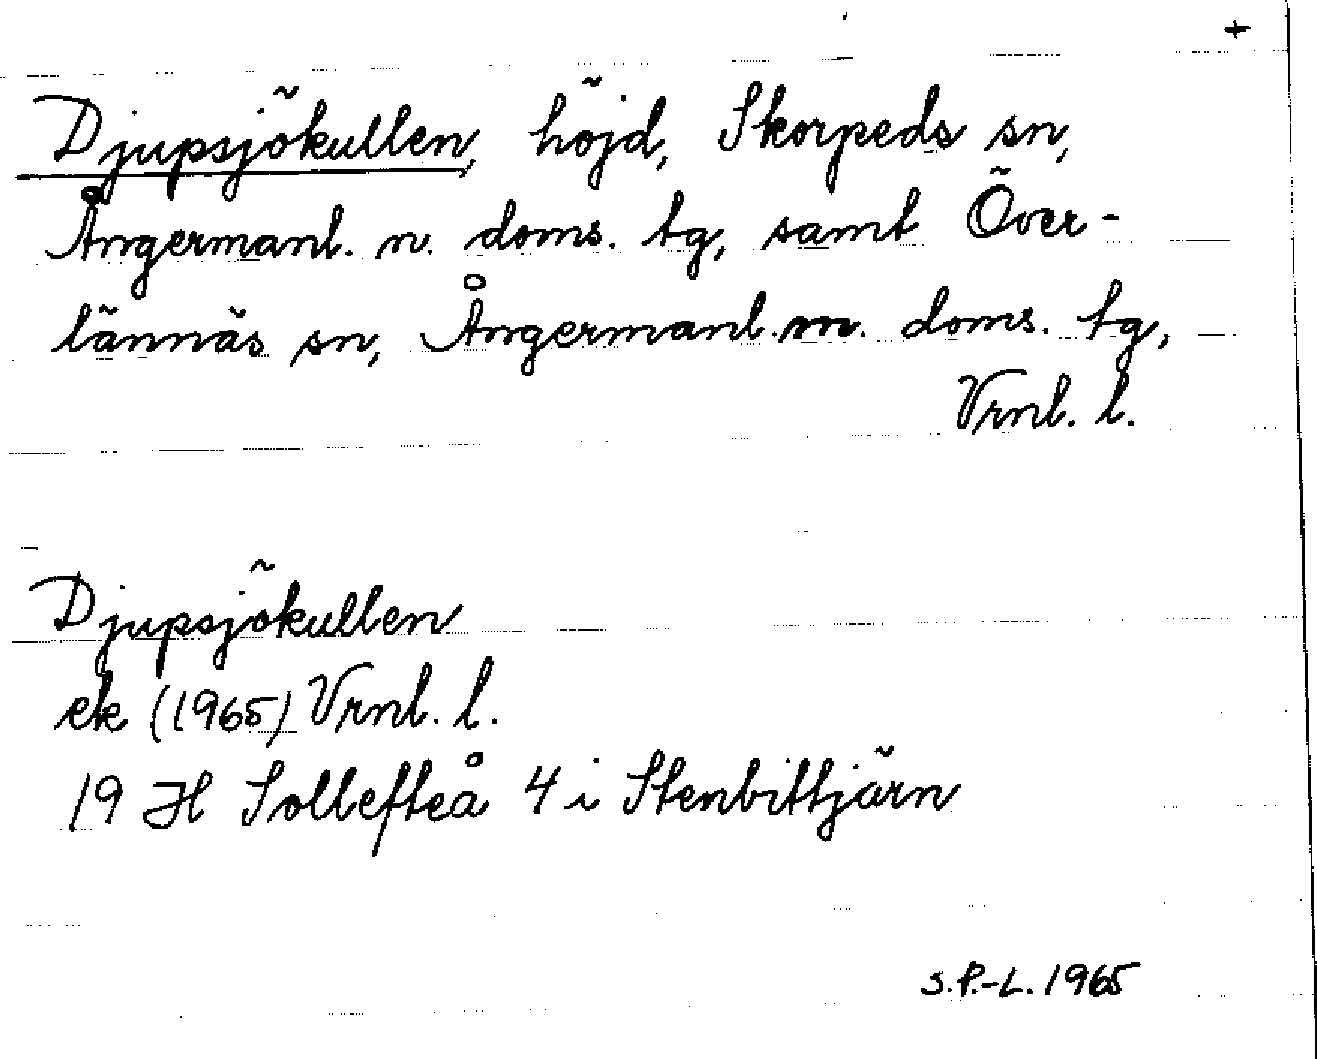 +
Djupsjökullen, höjd, Skorpeds sn,
Ångermanl. n. doms. tg, samt Över-
lännäs sn, Ångermanl. m. doms. tg,
Vrnl. l.
Djupsjökullen
ek (1965) Vrnl. l.
19 H Sollefteå 4 i Stenbittjärn
S.P.-L. 1965